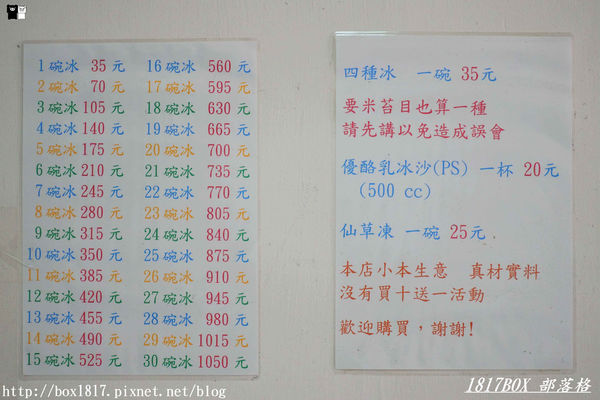 1 碗冰 35 元 16 碗冰 560 元
2 碗冰 70 元 17 碗冰 595 元
3 碗冰 105 元 18 碗冰 630 元
4 碗冰 140 元 19 碗冰 665 元
5 碗冰 175 元 20 碗冰 700 元
6 碗冰 210 元 21 碗冰 735 元
7 碗冰 245 元 22 碗冰 770 元
8 碗冰 280 元 23 碗冰 805 元
9 碗冰 315 元 24 碗冰 840 元
10 碗冰 350 元 25 碗冰 875 元
11 碗冰 385 元 26 碗冰 910 元
12 碗冰 420 元 27 碗冰 945 元
13 碗冰 455 元 28 碗冰 980 元
14 碗冰 490 元 29 碗冰 1015 元
15 碗冰 525 元 30 碗冰 1050 元
四種冰 一碗 35元
要米苔目也算一種
請先講以免造成誤會
優酪乳冰沙(PS) 一杯 20元
(500 cc)
仙草凍 一碗 25元.
本店小本生意 真材實料
沒有買十送一活動
歡迎購買，謝謝!
http://box1817.pixnet.net/blog
1817BOX 部落格